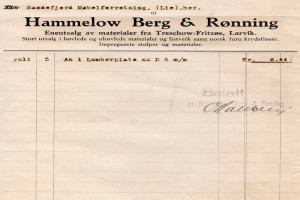 Sandefjord Møbelforretning, (Lie).her.
til
Hammelow Berg & Rønning
Eneutsalg av materialer fra Treschow-Fritzøe, Larvik.
Stort utvalg i høvlede og uhøvlede materialer og listverk samt norsk furu krydsfinéer.
Impregnerte stolper og materialer.
Juli 5 An 1 Lumberplate xx D 5 m/m Kr. 6.44
Betalt